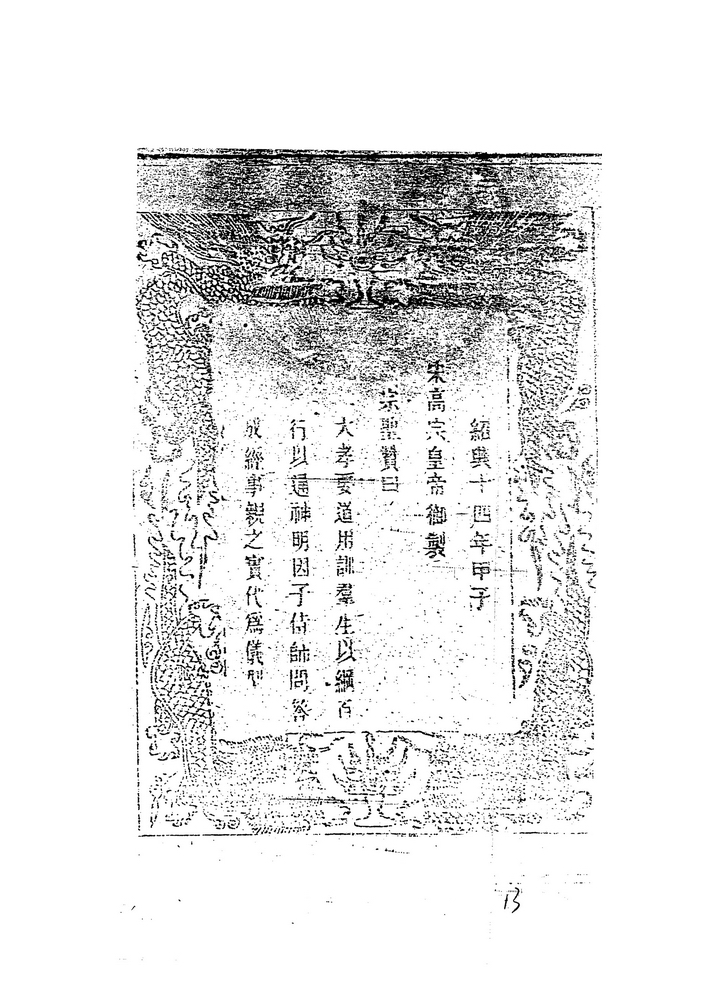 紹興十四年甲子
宋高宗皇帝御製
宗聖贊曰
大孝要道用訓羣生以綱百
行以通神明因子侍師問答
成經事親之實代爲儀型
13